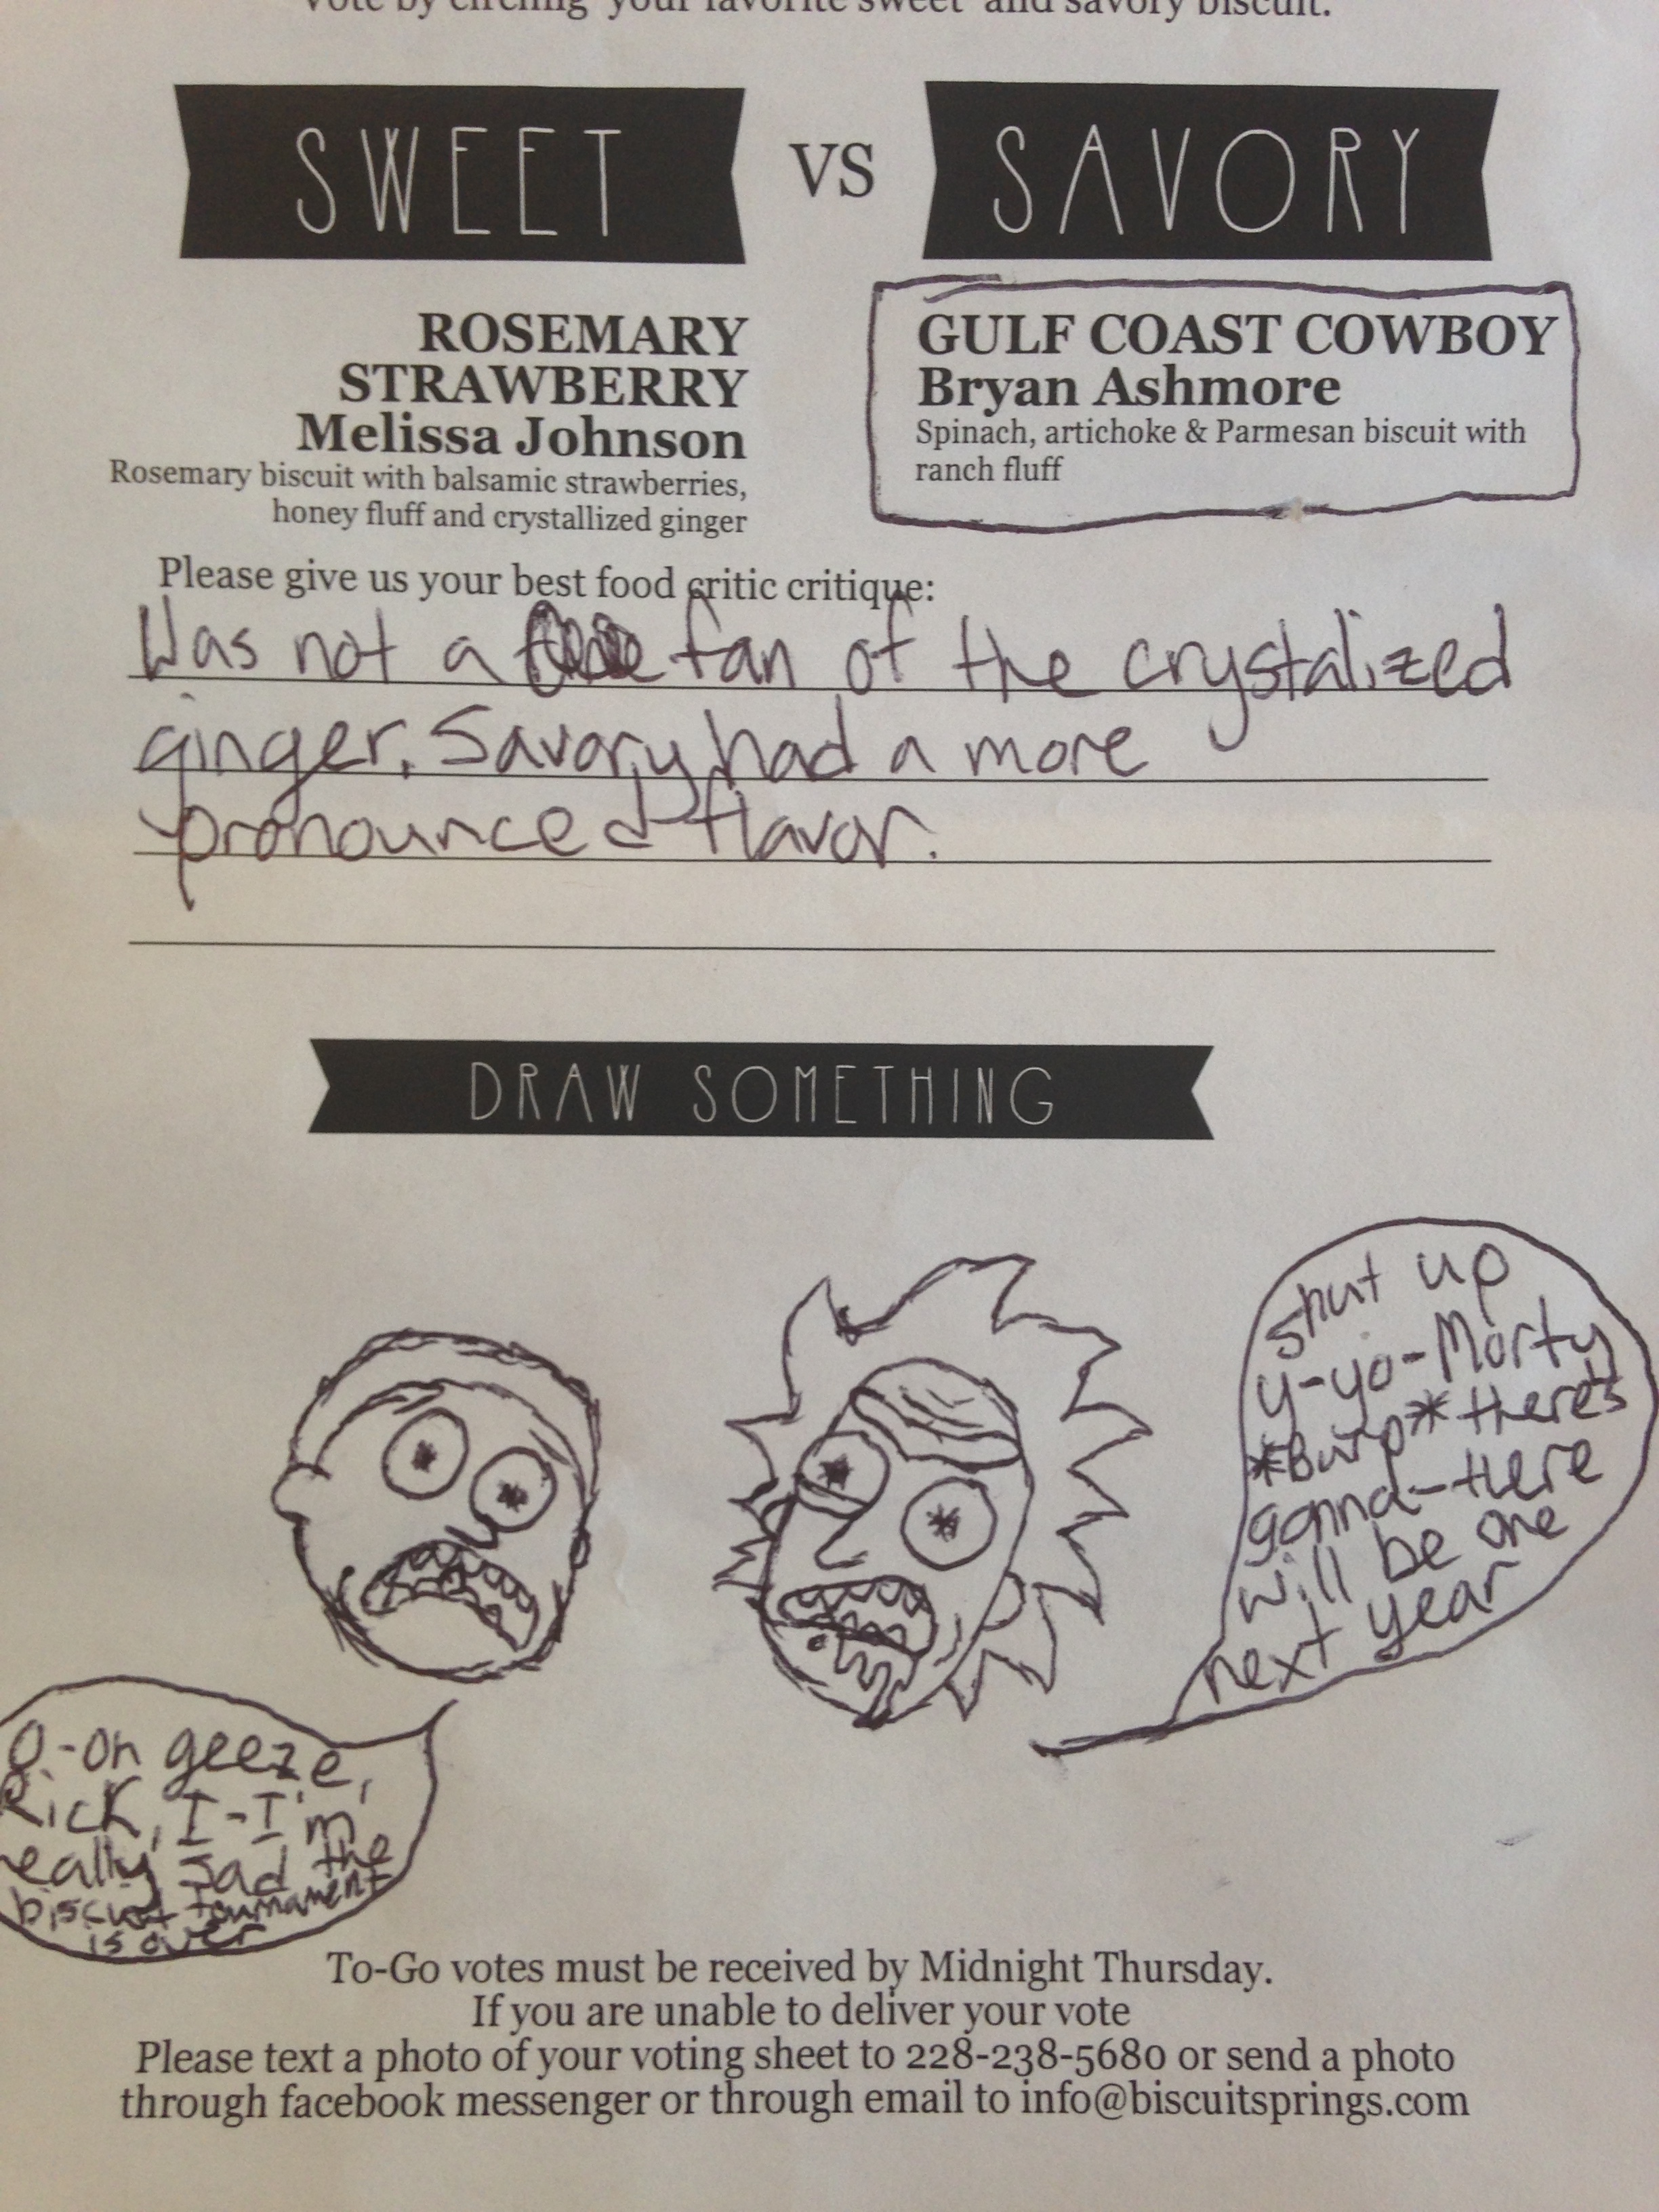 Vote by circling your favorite sweet and savory biscuit.
SWEET VS SAVORY
ROSEMARY
STRAWBERRY
Melissa Johnson
Rosemary biscuit with balsamic strawberries,
honey fluff and crystallized ginger
GULF COAST COWBOY
Bryan Ashmore
Spinach, artichoke & Parmesan biscuit with
ranch fluff
Please give us your best food critic critique:
Was not a fan of the crystalized
ginger. Savory had a more
pronounced flavor.
DRAW SOMETHING
shut up
y-yo-Morty
*Burp* there's
gonna-there
will be one
next year
O-oh geeze,
Rick, I-I'm
really sad the
biscuit tournament
is over
To-Go votes must be received by Midnight Thursday.
If you are unable to deliver your vote
Please text a photo of your voting sheet to 228-238-5680 or send a photo
through facebook messenger or through email to info@biscuitsprings.com